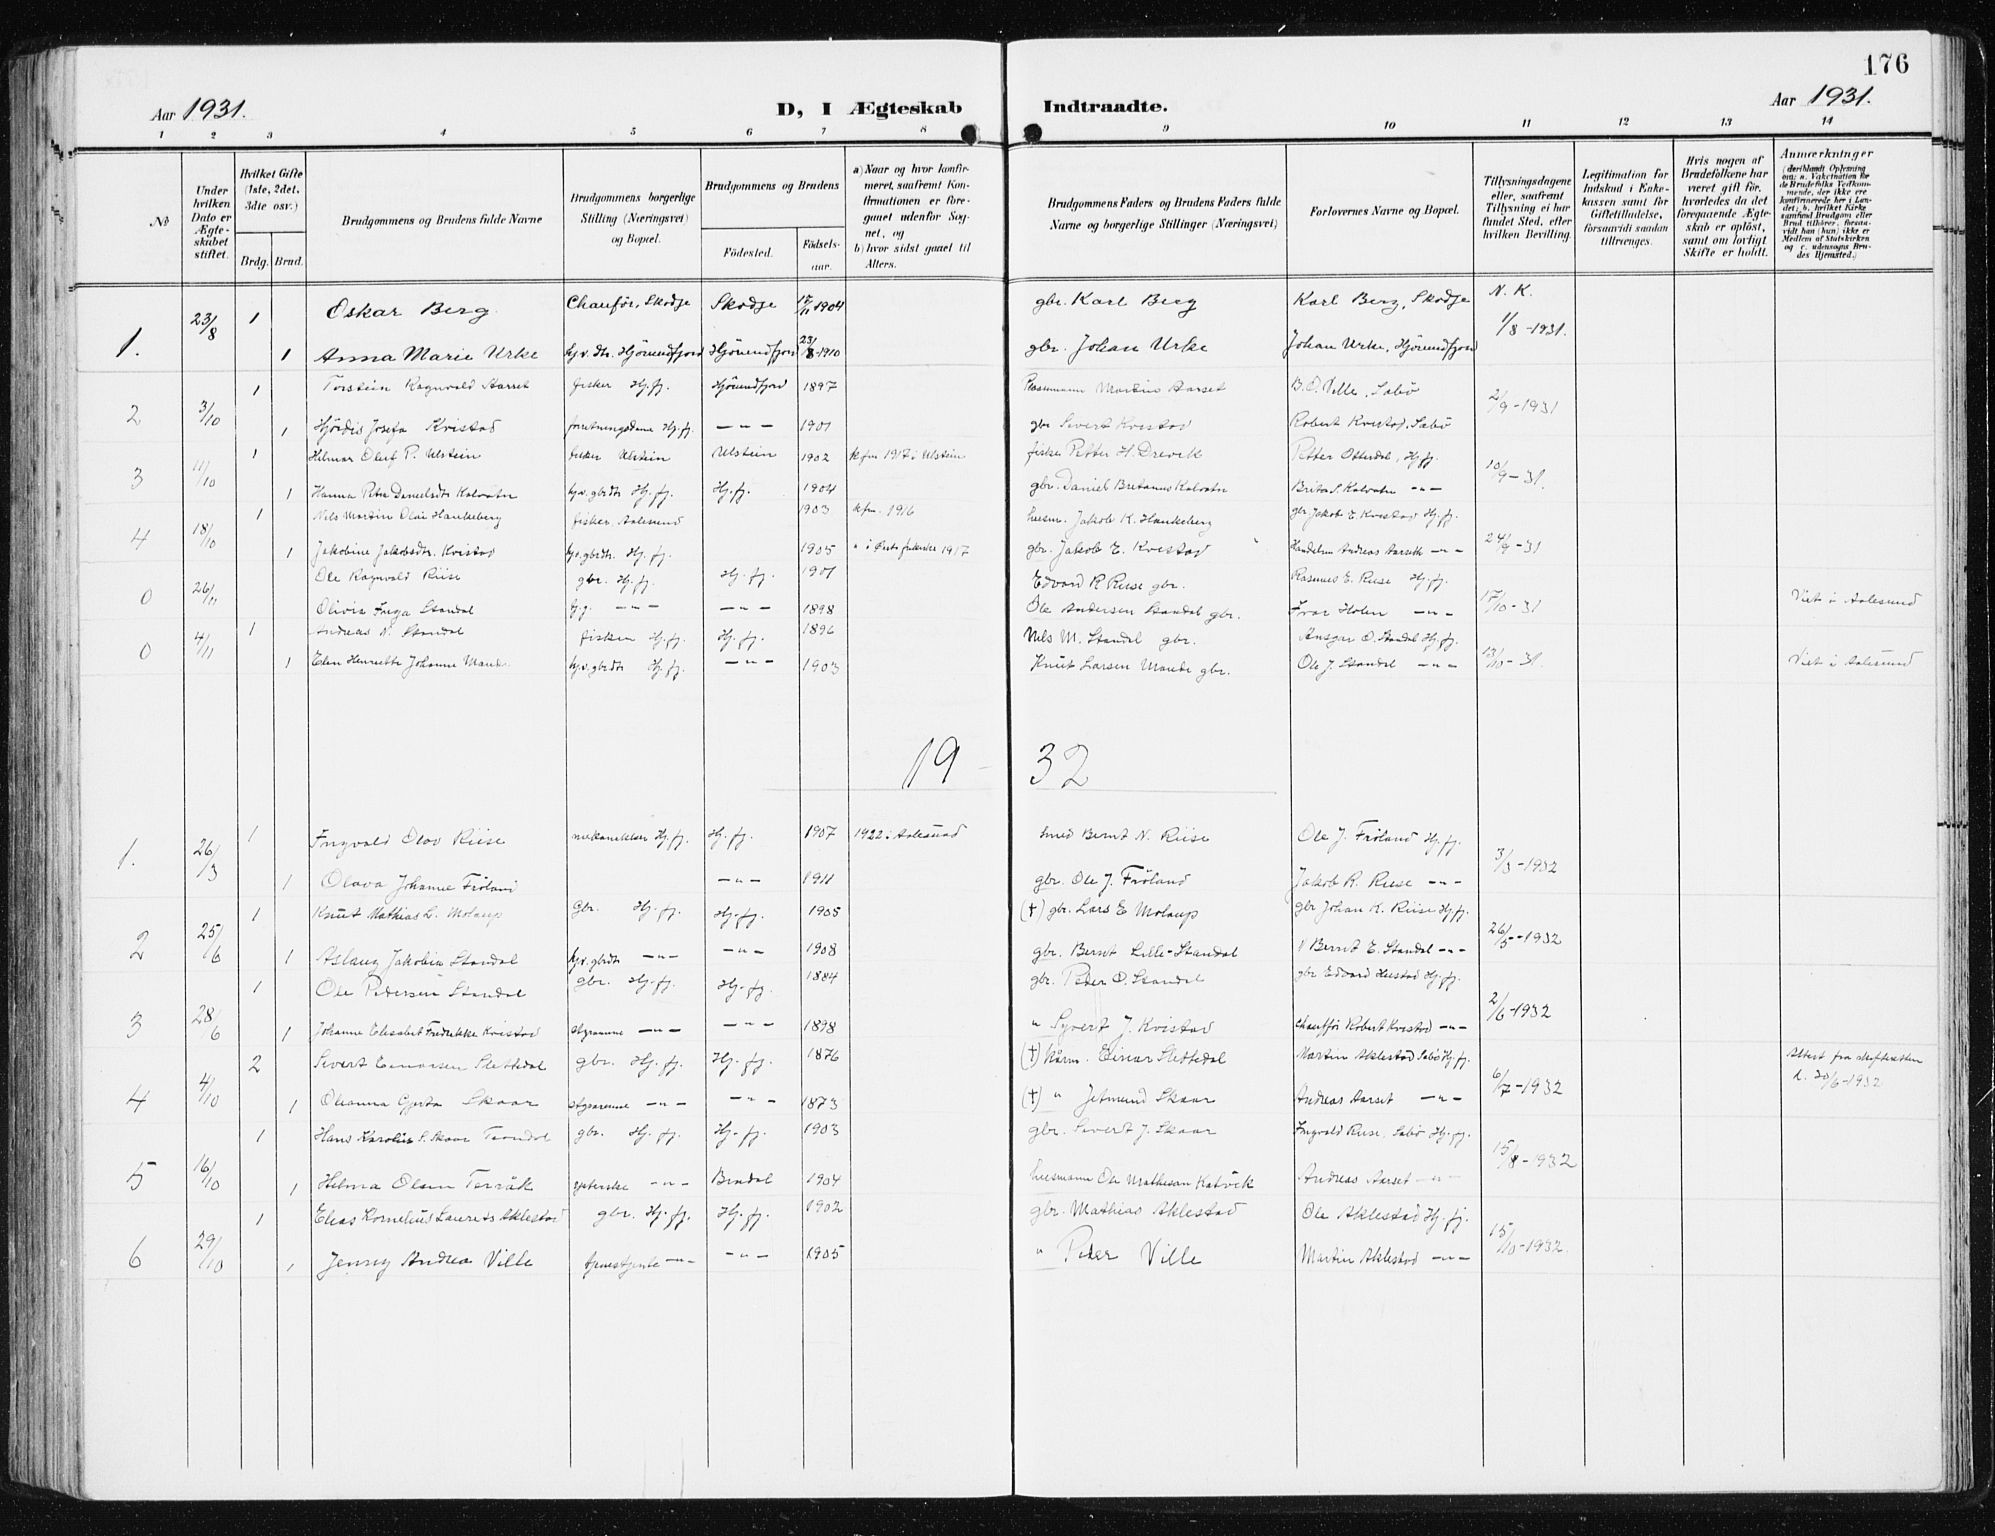 176
Aar 1931.
D, I Ægteskab Indtraadte.
Aar 1931.
1 2 3 4 5 6 7 8 9 10 11 12 13 14
No
Under hvilken Dato er Ægteskabet stiftet.
Hvilket Gifte (1ste, 2det, 3die osv.)
Brdg. Brud.
Brudgommens og Brudens fulde Navne
Brudgommens borgerlige Stilling (Næringsvei) og Bopæl.
Brudgommens og Brudens
Fødested.
Fødselsaar.
a) Naar og hvor konfirmeret, saafremt Konfirmationen er foregaaet udenfor Sognet, og
b) hvor sidst gaaet til Alters.
Brudgommens Faders og Brudens Faders fulde Navne og borgerlige Stillinger (Næringsvei)
Forlovernes Navne og Bopæl.
Tillysningsdagene eller, saafremt Tillysning ei har fundet Sted, efter hvilken Bevilling.
Legitimation for Indskud i Enkekassen samt for Giftetilladelse, forsaavidt saadan tiltrænges.
Hvis nogen af Brudefolkene har været gift før, hvorledes da det foregaaende Ægteskab er opløst, samt om lovligt Skifte er holdt.
Anmærkninger
(deriblandt Oplysning om: a. Vakcination for de Brudefolks Vedkommende, der ikke ere konfirmerede her i Landet; b. hvilket Kirkesamfund Brudgom eller Brud tilhører, forsaavidt han (hun) ikke er Medlem af Statskirken og c. udensogns Brudes Hjemsted.)
1. 23/8 1 Oskar Berg Chauför, Skodje Skodje 17/11 1904 gbr. Karl Berg Karl Berg, Skodje N. K. 1/8-1931.
1 Anna Marie Urke hj.v. dtr. Hjörundfjord Hjörundfjord 23/8-1910 gbr. Johan Urke Johan Urke, Hjörundfjord
2 3/10 1 Torstein Ragnvald Aarset fisker Hj.fj. Hjörundfjord 1897 Martin Aarset B.O. Ville, Sæbø 2/9-1931
1 Hjördis Josefa Kvistad Hj.fj. -"- 1901 gbr Sivert Kvistad Robert Kvistad, Sæbö
3 11/10 1 Hilmar Oluf P. Ulstein fisker Ulstein Ulstein 1902 kfm 1917 i Ulstein fisker Petter H. Drevik Petter Otterdal, Hj.fj. 10/9-31.
1 Hanna Petra Danielsdtr Kalvatn hj.v. gbrdtr Hj.fj. Hj.fj. 1904 gbr. Daniel Kalvatn S. Kalvatn -"-
4 18/10 1 Nils Martin Olai Hankeberg fisker, Aalesund 1903 kfm. 1916 husm. Jakob K. Hankeberg gbr Jakob E. Kvistad Hj.fj. 24/9-31
1 Jakobine Jakobsdtr. Kvistad hj.v. gbrdtr. Hj.fj. 1905 " i 1917 gbr. Jakob E. Kvistad Andreas Aarseth -"-
0 26/11 Ole Ragnvald Riise gbr. Hj.fj. Hj.fj. 1901 Edvard R Riise gbr. Rasmus E. Riise Hj.fj. 17/10-31 Viet i Aalesund
Olivia Inga Standal -"- -"- 1898 Ole Andersen Standal gbr. Ivar Holen -"-
0 4/11 1 Andreas N. Standal fisker Hj.fj. Hj.fj. 1896 Nils M. Standal gbr. Ansgar O. Standal Hj.fj. 13/10-31. Viet i Aalesund
1 Elen Henriette Johanne hj.v. gbrdtr Hj.fj. -"- 1903 Knut Larsen gbr. Ole J. Standal -"-
19 32
1. 26/3 1 Ingvald Olav Riise Hj.fj. Hj.fj. 1907 1922 i Aalesund smed Bernt N. Riise Ole J. Fröland Hj.fj. 3/3-1932
1 Olava Johanne Fröland -"- 1911 gbr. Ole J. Fröland Jakob R. Riise -"-
2 25/6 1 Knut Mathias L. Molaup Gbr. Hj.fj. Hj.fj. 1905 (†) gbr. Lars E Molaup gbr Johan K. Riise Hj.fj. 26/5-1932
1 Aslaug Jakobine Standal hj.v. gbrdtr -"- -"- 1908 gbr. Bernt Lille-Standal " Bernt E. Standal -"-
3 28/6 1 Ole Pedersen Standal gbr. Hj.fj. Hj.fj. 1884 gbr. Peder O. Standal gbr Edvard Hustad Hj.fj. 2/6-1932
1 Johanne Elisabet Fredrikke Kvistad -"- -"- 1898 " Syvert J. Kvistad Chaufför Robert Kvistad -"-
4 4/10 2 Sivert Einarsen Slettedal gbr. Hj.fj. Hj.fj. 1876 (†) Einar Slettedal Martin Aklestad Sæbö Hj.fj. 6/7-1932 Attest fra skifteretten d. 30/6-1932
1 Oleanna Gjerta Skaar -"- -"- 1873 (†) " Jetmund Skaar Andreas Aarset -"-
5 16/10 1 Hans Karolius S. Skaar Trandal gbr. Hj.fj. Hj.fj. 1903 gbr. Sivert J. Skaar Ingvald Riise, Sæbö Hj.fj. 15/8-1932
1 Helma Olsen Terråk -"- Bindal 1904 husmann Ole Mathisen Andreas Aarset -"-
6 29/10 1 Elias Kornelius Laurits Aklestad gbr. Hj.fj. Hj.fj. 1902 gbr. Mathias Aklestad Ole Aklestad Hj.fj. 15/10-1932.
1 Jenny Andrea Ville -"- -"- 1905 " Peder Ville Martin Aklestad -"-